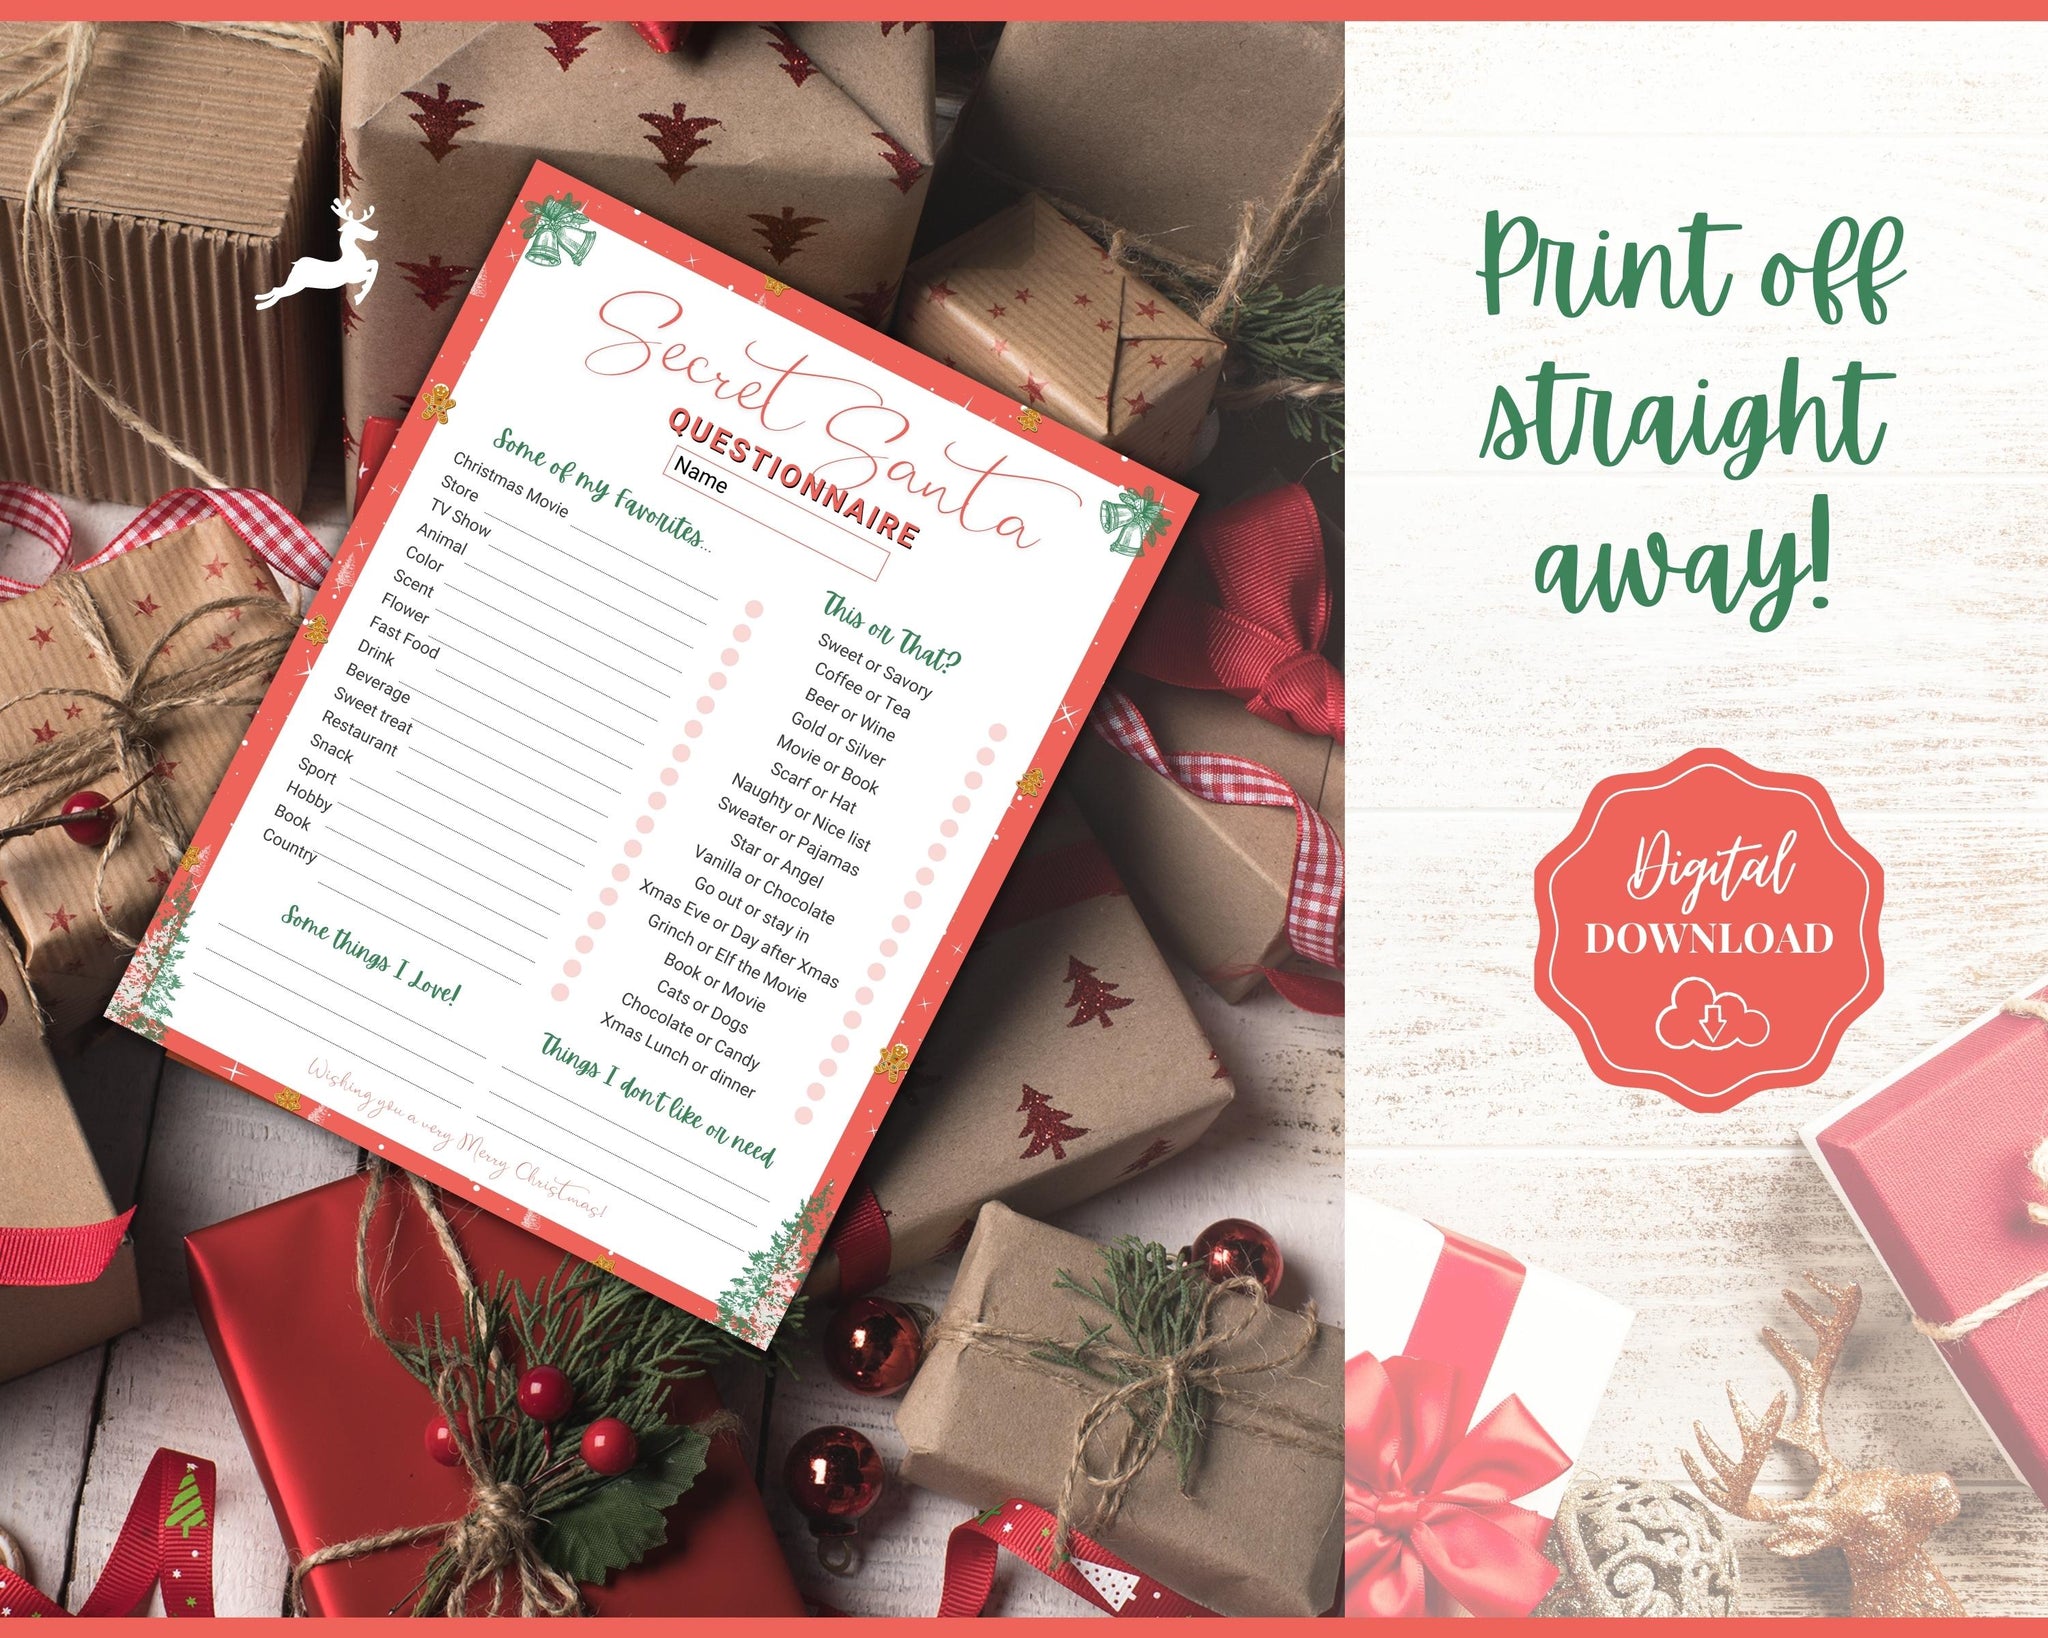 Secret Santa
QUESTIONNAIRE
Name
Some of my Favorites...
Christmas Movie
Store
TV Show
Animal
Color
Scent
Flower
Fast Food
Drink
Beverage
Sweet treat
Restaurant
Snack
Sport
Hobby
Book
Country
This or That?
Sweet or Savory
Coffee or Tea
Beer or Wine
Gold or Silver
Movie or Book
Scarf or Hat
Naughty or Nice list
Sweater or Pajamas
Star or Angel
Vanilla or Chocolate
Go out or stay in
Xmas Eve or Day after Xmas
Grinch or Elf the Movie
Book or Movie
Cats or Dogs
Chocolate or Candy
Xmas Lunch or dinner
Some things I Love!
Things I don't like or need
Wishing you a very Merry Christmas!
Print off
straight
away!
Digital
DOWNLOAD